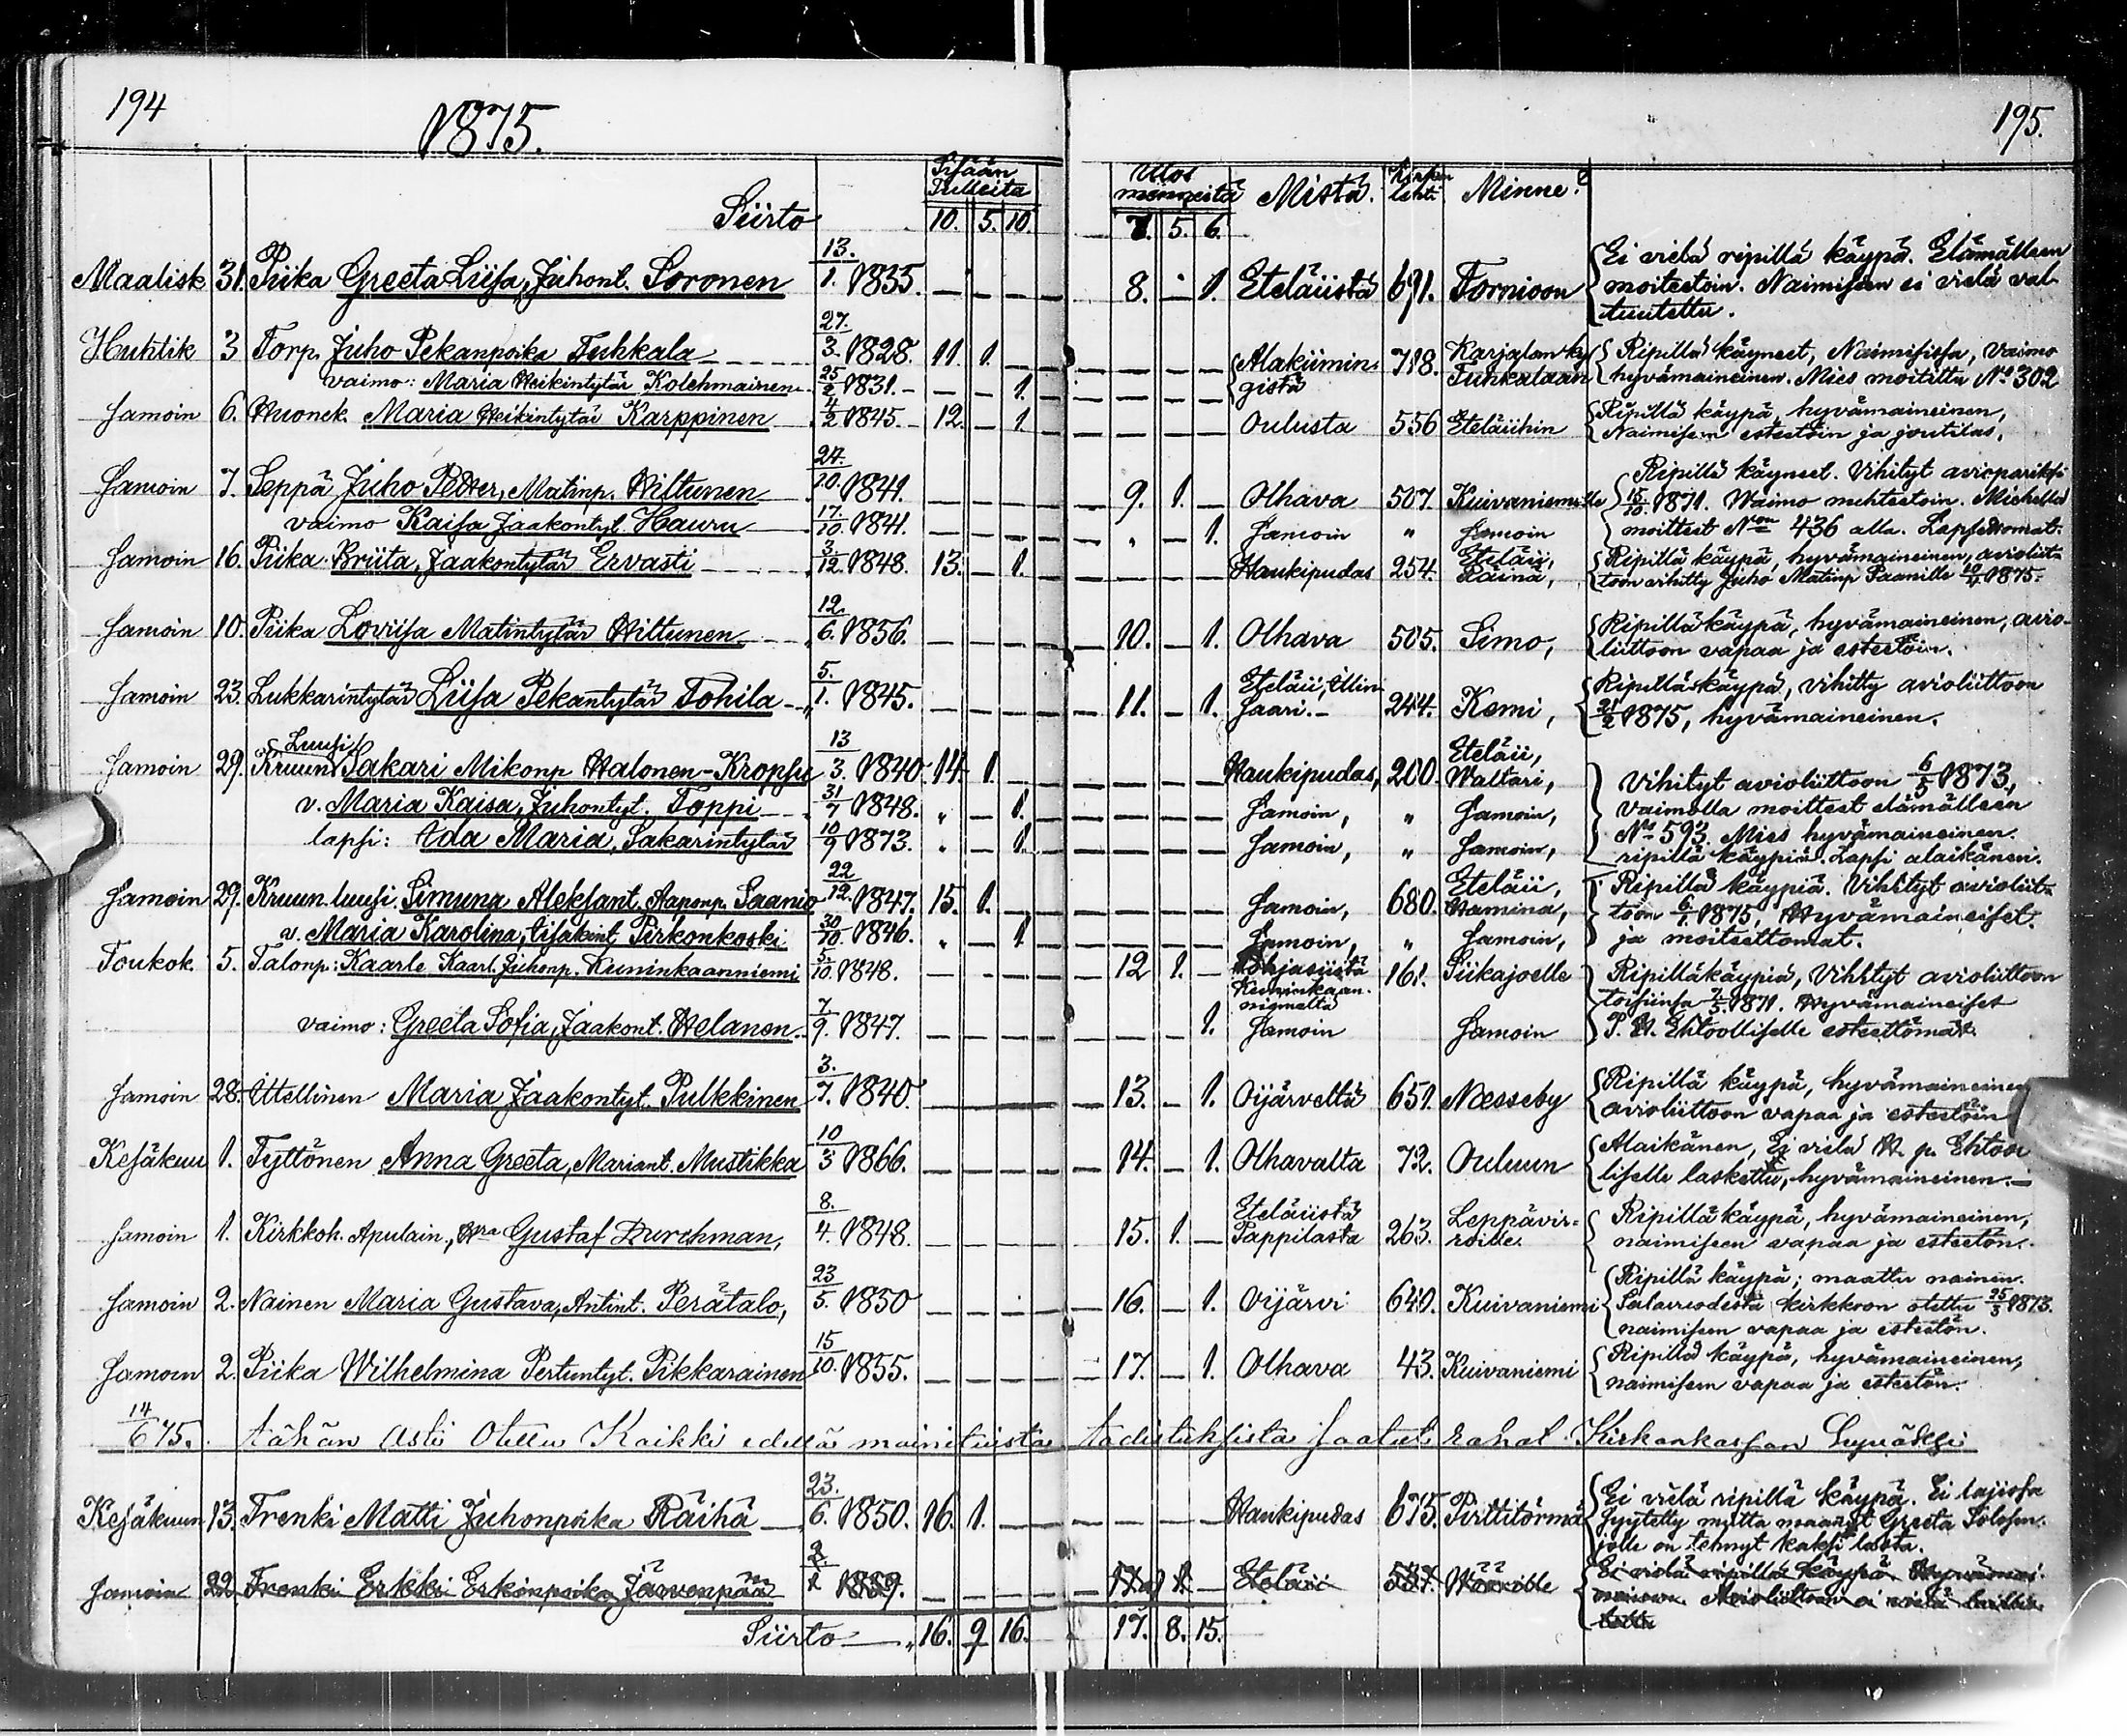 194
1875.
195.
Sisään Tulleita
Ulos menneitä Mistä. Kirkon lehti Minne?
Siirto 10. 5. 10. 7. 5. 6.
Maalisk 31. Piika Greeta Liisa, Juhont. Soronen 13./1. 1835. 8. 1. Eteläiistä 691. Tornioon Ei vielä ripillä käypä. Elämälleen
moiteetoin. Naimiseen ei vielä val-
tuutettu.
Huhtik 3 Torp. Juho Pekanpoika Tuhkala 27./3. 1828. 11. 1. Alakiimin- 718. Karjalan ky Ripillä käyneet, Naimisissa, Vaimo
vaimo: Maria Heikintytär Kolehmainen 25/2 1831. 1. gistä Tuhkalaan hyvämaineinen. Mies moitittu No 302
Samoin 6. Huonek. Maria Heikintytär Karppinen 4/2 1845. 12. 1. Oulusta 556 Eteläiihin Ripillä käypä, hyvämaineinen,
Naimiseen esteetöin ja joutilas.
Samoin 7. Seppä Juho Petter, Matinp. Hiltunen 24./10. 1841. 9. 1. Olhava 507. Kuivaniemelle Ripillä käyneet. Vihityt aviopariksi
15/10 1871. Waimo nuhteetoin. Miehellä
vaimo Kaisa Jaakontyt. Hauru 17./10. 1841. 1. Samoin " Samoin moitteet Non 436 alla. Lapsettomat.
Samoin 16. Piika Briita, Jaakontytär Ervasti 3/12. 1848. 13. 1. Haukipudas 254. Eteläii, Räinä, Ripillä käypä, hyvämaineinen, avioliit-
toon vihitty Juho Matinp Paanille 1875.
Samoin 10. Piika Loviisa Matintytär Hiltunen 12./6. 1856. 10. 1. Olhava 505. Simo, Ripillä käypä, hyvämaineinen, avio-
liittoon vapaa ja esteetöin.
Samoin 23. Lukkarintytär Liisa Pekantytär Tohila 5./1. 1845. 11. 1. Eteläii, Illin- saari. 244. Kemi, Ripillä käypä, vihitty avioliittoon
21/2 1875, hyvämaineinen.
Samoin 29. Kruun Luusi Sakari Mikonp Halonen-Kropsu 13/3. 1840. 14. 1. Haukipudas, 200. Eteläii, Waltari, Vihityt avioliittoon 6/5 1873,
v. Maria Kaisa, Juhontyt. Toppi 31/7 1848. " 1. Samoin, " Samoin, Vaimolla moitteet elämälleen
No 593. Mies hyvämaineinen.
lapsi: Ada Maria, Sakarintytär 10/9 1873. " 1. Samoin, " Samoin, ripillä käypiä. Lapsi alaikänen.
Samoin 29. Kruun. luusi. Simuna Aleksant. Aaponp. Saanio 22/12. 1847. 15. 1. Samoin, 680. Eteläii, Hamina, Ripillä käypiä. Vihityt avioliit-
toon 6/1. 1875, Hyvämaineiset.
v. Maria Karolina, Iisakint Pirkonkoski 30/10. 1846. " 1 Samoin, " Samoin, ja moiteettomat.
Toukok. 5. Talonp: Kaarle Kaarl. Juhonp. Kuninkaanniemi 5./10. 1848. 12 1. Pohjasiistä Kuninkaan- niemeltä 161. Siikajoelle Ripilläkäypiä, Vihityt avioliittoon
toisiinsa 1871. Hyvämaineiset
vaimo: Greeta Sofia, Jaakont. Helanen. 7/9. 1847. 1. Samoin Samoin P. H. Ehtoolliselle esteettömät.
Samoin 28. Ittellinen Maria Jaakontyt. Pulkkinen 3./7. 1840. 13. 1. Oijärveltä 651. Nesseby Ripillä käypä, hyvämaineinen
avioliittoon vapaa ja esteetöin
Kesäkuu 1. Tyttönen Anna Greeta, Mariant. Mustikka 10/3 1866. 14. 1. Olhavalta 72. Ouluun Alaikänen, Ei vielä H. p. Ehtool-
liselle laskettu, hyvämaineinen.
Samoin 1. Kirkkoh. Apulain., Hra Gustaf Durchman, 8./4. 1848. 15. 1. Eteläiistä Pappilasta 263. Leppävir- roille. Ripillä käypä, hyvämaineinen,
naimiseen vapaa ja esteetön.
Samoin 2. Nainen Maria Gustava, Antint. Perätalo, 23/5. 1850 16. 1. Oijärvi 640. Kuivaniemi Ripillä käypä; maattu nainen.
Salavuodesta kirkkoon otettu 25/3 1873.
naimiseen vapaa ja esteetön.
Samoin 2. Piika Wilhelmina Pertuntyt. Pikkarainen 15/10. 1855. 17. 1. Olhava 43. Kuivaniemi Ripillä käypä, hyvämaineinen,
naimiseen vapaa ja esteetön.
14/6 75. tähän asti Otettu Kaikki edellä mainituista todistuksista saatut rahat Kirkonkassan hyväksi
Kesäkuun 13. Trenki Matti Juhonpoika Räihä 23./6. 1850. 16. 1. Haukipudas 675. Pirttitörmä Ei vielä ripillä käypä. Ei lajissa
syytetty mutta maannut Greeta Solosen.
jolle on tehnyt kaksi lasta.
Samoin 22 Trenki Erkki Erkinpoika Järvenpää 1859. Eteläii 587. Ei vielä ripillä käypä. Hyvämai-
neinen. Avioliittoon ei vielä
Siirto 16. 9 16. 17. 8. 15.